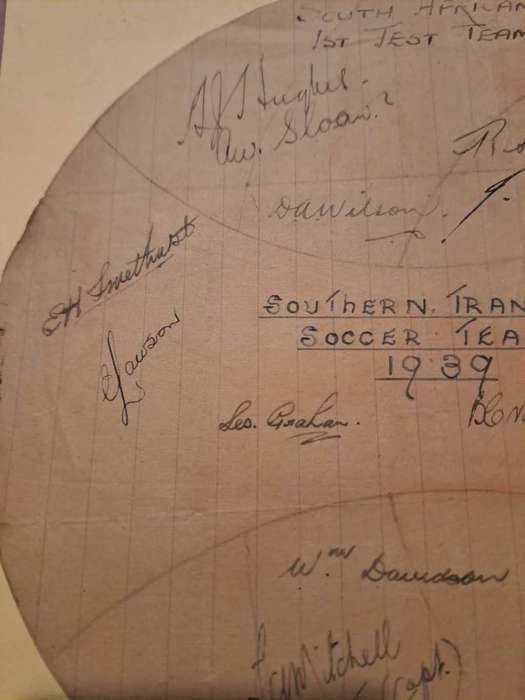 SOUTH AFRICAN
1ST TEST TEAM
A J Hughes.
Aw. Sloan.
DAWilson.
EH Smethurst
SOUTHERN. TRAN
SOCCER TEA
1939
Lawson
Geo. Graham.
Wm Davidson
Mitchell
(Capt.)